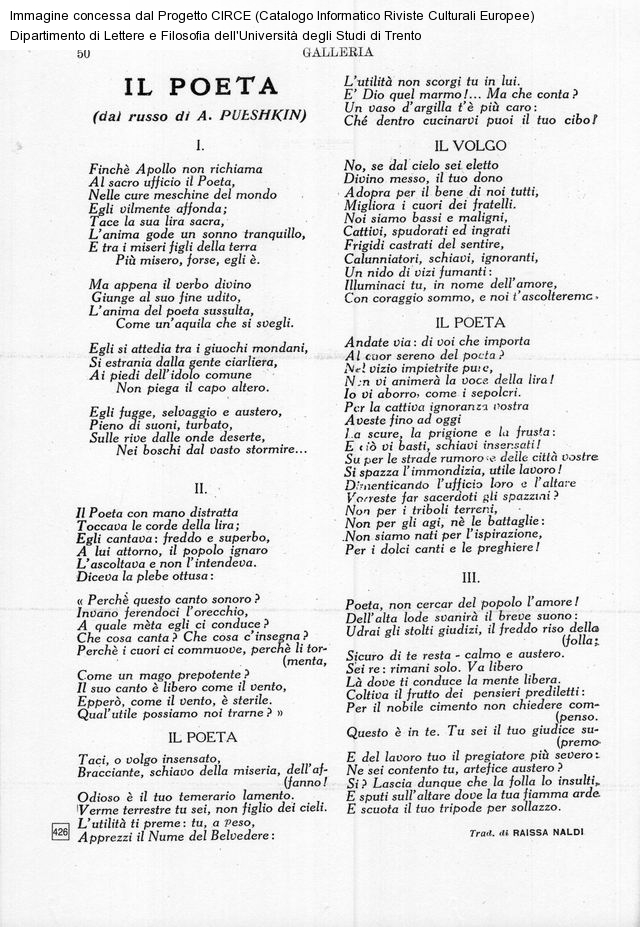 Immagine concessa dal Progetto CIRCE (Catalogo Informatico Riviste Culturali Europee)
Dipartimento di Lettere e Filosofia dell'Università degli Studi di Trento
50
GALLERIA
IL POETA
(dal russo di A. PUESHKIN)
I.
Finchè Apollo non richiama
Al sacro ufficio il Poeta,
Nelle cure meschine del mondo
Egli vilmente affonda;
Tace la sua lira sacra,
L'anima gode un sonno tranquillo,
E tra i miseri figli della terra
Più misero, forse, egli è.
Ma appena il verbo divino
Giunge al suo fine udito,
L'anima del poeta sussulta,
Come un'aquila che si svegli.
Egli si attedia tra i giuochi mondani,
Si estrania dalla gente ciarliera,
Ai piedi dell'idolo comune
Non piega il capo altero.
Egli fugge, selvaggio e austero,
Pieno di suoni, turbato,
Sulle rive dalle onde deserte,
Nei boschi dal vasto stormire...
II.
Il Poeta con mano distratta
Toccava le corde della lira;
Egli cantava: freddo e superbo,
A lui attorno, il popolo ignaro
L'ascoltava e non l'intendeva.
Diceva la plebe ottusa:
« Perchè questo canto sonoro?
Invano ferendoci l'orecchio,
A quale mèta egli ci conduce?
Che cosa canta? Che cosa c'insegna?
Perchè i cuori ci commuove, perchè li tor-
(menta,
Come un mago prepotente?
Il suo canto è libero come il vento,
Epperò, come il vento, è sterile.
Qual'utile possiamo noi trarne? »
IL POETA
Taci, o volgo insensato,
Bracciante, schiavo della miseria, dell'af-
(fanno!
Odioso è il tuo temerario lamento.
Verme terrestre tu sei, non figlio dei cieli.
L'utilità ti preme: tu, a peso,
Apprezzi il Nume del Belvedere:
426
L'utilità non scorgi tu in lui.
E' Dio quel marmo!... Ma che conta?
Un vaso d'argilla t'è più caro:
Ché dentro cucinarvi puoi il tuo cibo!
IL VOLGO
No, se dal cielo sei eletto
Divino messo, il tuo dono
Adopra per il bene di noi tutti,
Migliora i cuori dei fratelli.
Noi siamo bassi e maligni,
Cattivi, spudorati ed ingrati
Frigidi castrati del sentire,
Calunniatori, schiavi, ignoranti,
Un nido di vizi fumanti:
Illuminaci tu, in nome dell'amore,
Con coraggio sommo, e noi t'ascolteremo.
IL POETA
Andate via: di voi che importa
Al cuor sereno del poeta?
Nel vizio impietrite pure,
Non vi animerà la voce della lira!
Io vi aborro, come i sepolcri.
Per la cattiva ignoranza vostra
Aveste fino ad oggi
La scure, la prigione e la frusta:
E ciò vi basti, schiavi insensati!
Su per le strade rumorose delle città vostre
Si spazza l'immondizia, utile lavoro!
Dimenticando l'ufficio loro e l'altare
Vorreste far sacerdoti gli spazzini?
Non per i triboli terreni,
Non per gli agi, nè le battaglie:
Non siamo nati per l'ispirazione,
Per i dolci canti e le preghiere!
III.
Poeta, non cercar del popolo l'amore!
Dell'alta lode svanirà il breve suono:
Udrai gli stolti giudizi, il freddo riso della
(folla;
Sicuro di te resta - calmo e austero.
Sei re: rimani solo. Va libero
Là dove ti conduce la mente libera.
Coltiva il frutto dei pensieri prediletti:
Per il nobile cimento non chiedere com-
(penso.
Questo è in te. Tu sei il tuo giudice su-
(premo
E del lavoro tuo il pregiatore più severo:
Ne sei contento tu, artefice austero?
Si? Lascia dunque che la folla lo insulti,
E sputi sull'altare dove la tua fiamma arde
E scuota il tuo tripode per sollazzo.
Trad. di RAISSA NALDI